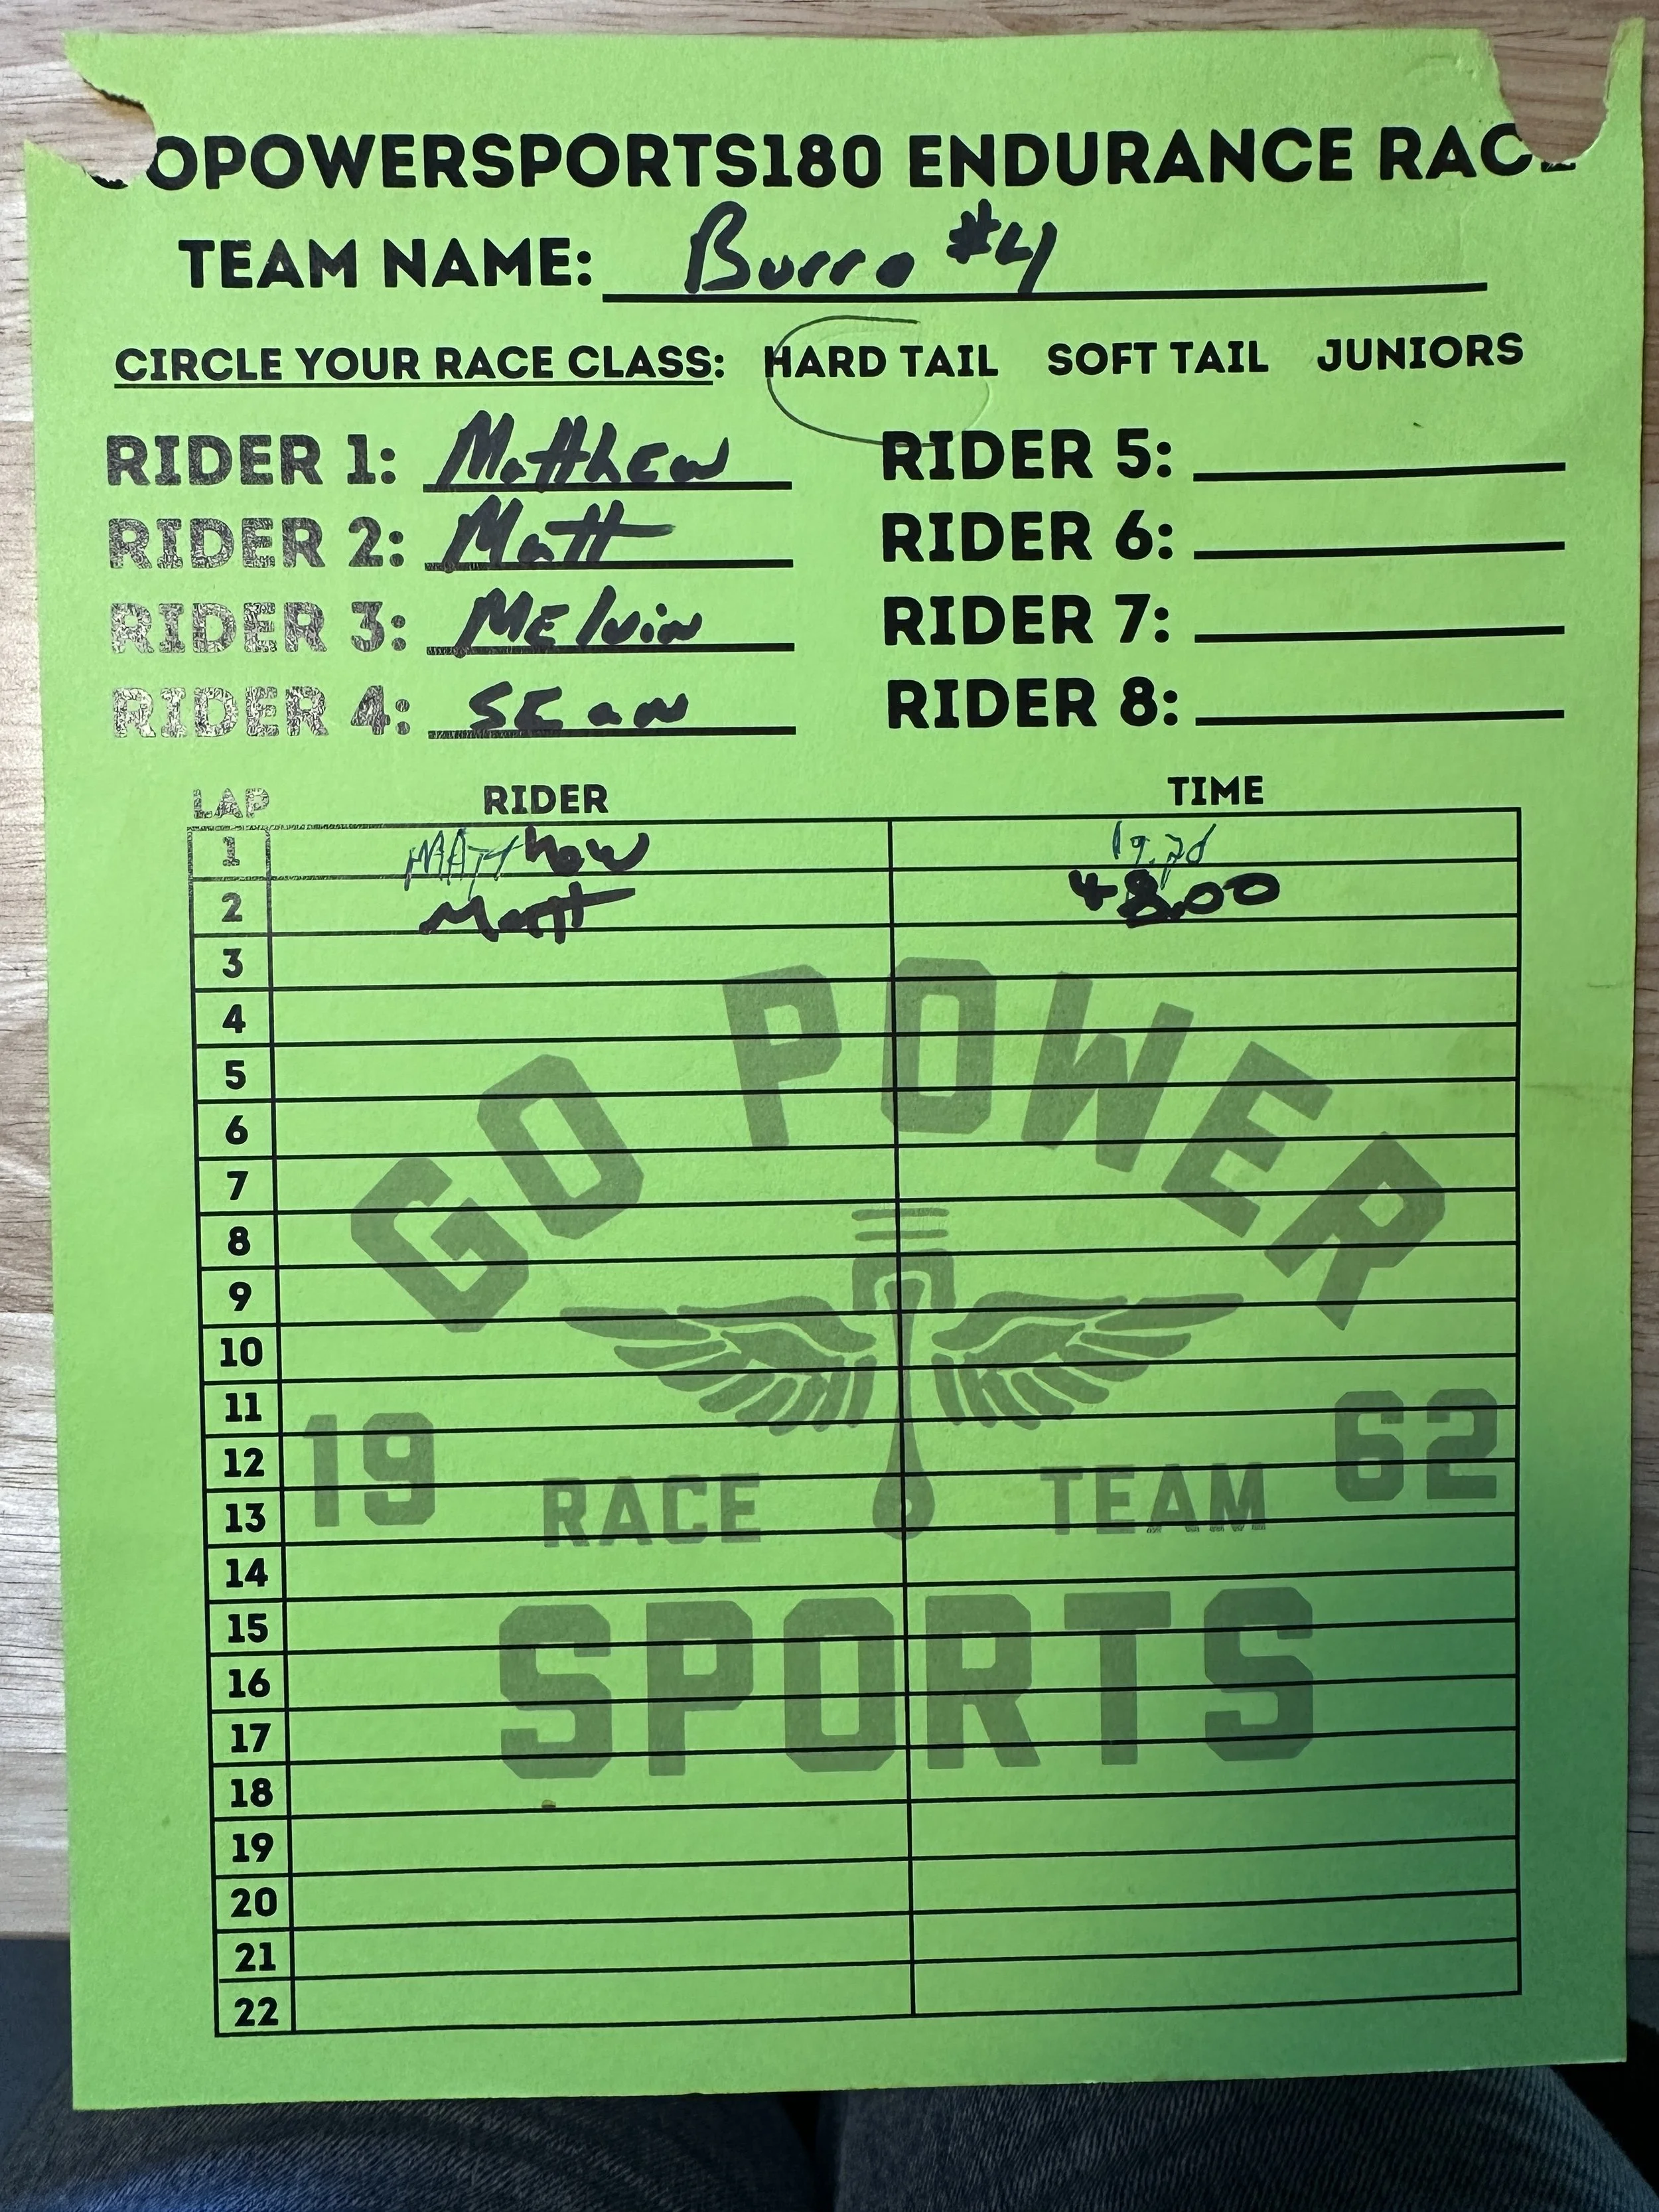 OPOWERSPORTS180 ENDURANCE RACE
TEAM NAME: Burro #4
CIRCLE YOUR RACE CLASS: HARD TAIL SOFT TAIL JUNIORS
RIDER 1: Matthew RIDER 5:
RIDER 2: Matt RIDER 6:
RIDER 3: MElvin RIDER 7:
RIDER 4: SEan RIDER 8:
LAP RIDER TIME
1 MATThew
2 Matt 48.00
3
4
5
6
7
8
9
10
11
12
13
14
15
16
17
18
19
20
21
22
GO POWER
19 62
RACE TEAM
SPORTS